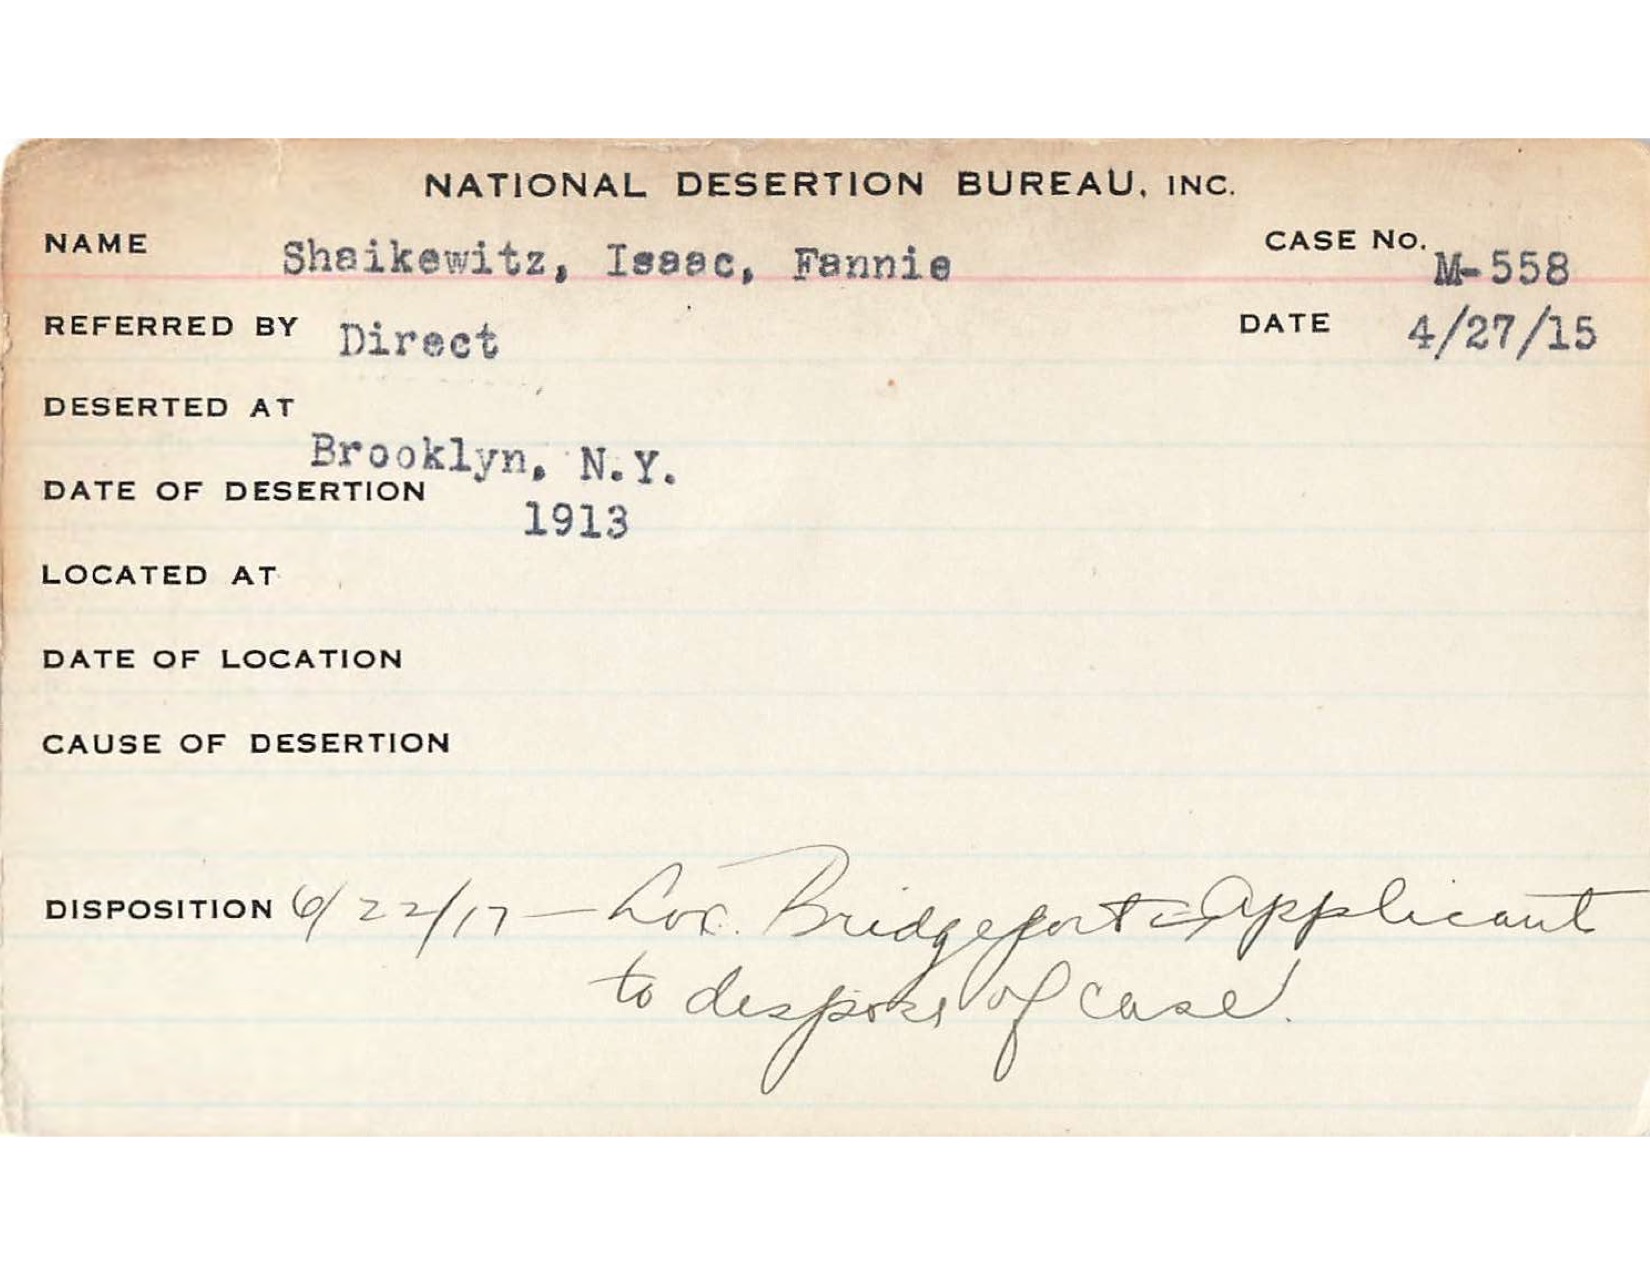 NATIONAL DESERTION BUREAU, INC.
NAME Shaikewitz, Isaac, Fannie CASE NO. M-558
REFERRED BY Direct DATE 4/27/15
DESERTED AT
Brooklyn, N.Y.
DATE OF DESERTION
1913
LOCATED AT
DATE OF LOCATION
CAUSE OF DESERTION
DISPOSITION 6/22/17 — Loc. Bridgeport - Applicant
to dispose of case.